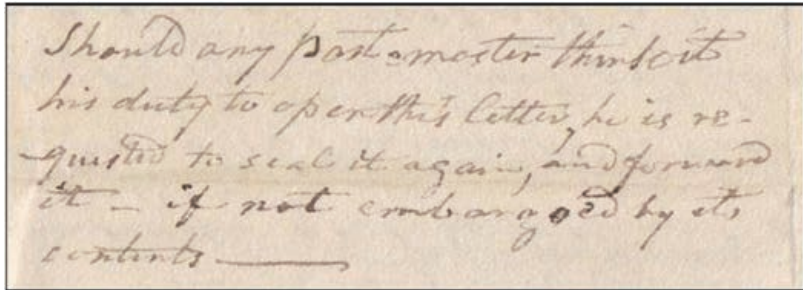 Should any post-master think it
his duty to open this letter, he is re-
quested to seal it again, and forward
it – if not embargoed by its
contents ——